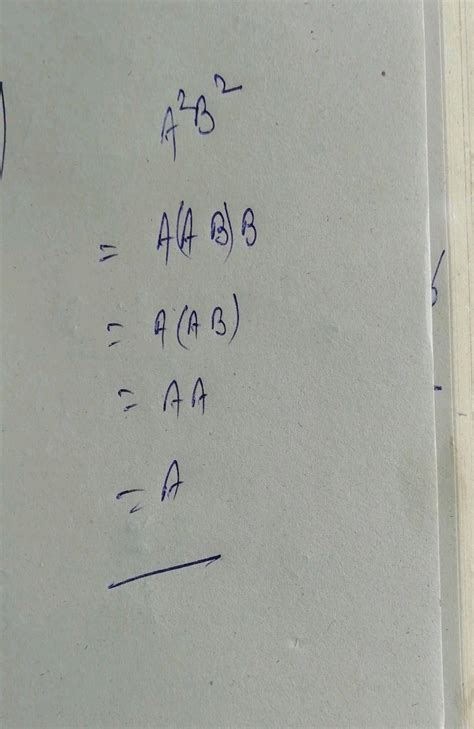 A²B²
= A(AB)B
= A(AB)
= AA
= A